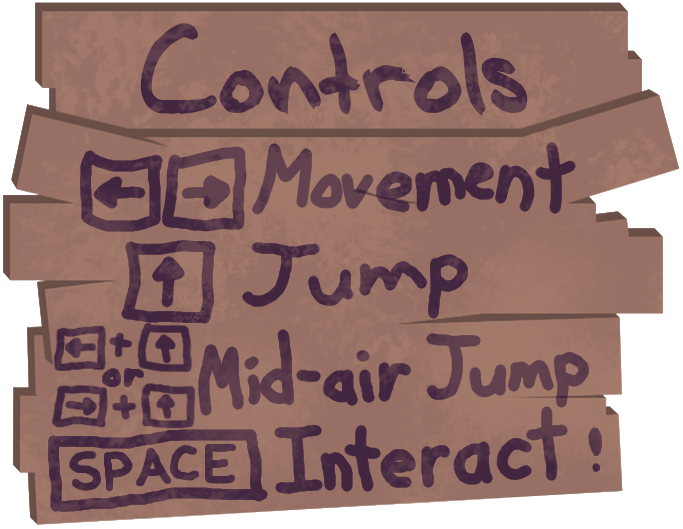 Controls
← → Movement
↑ Jump
← + ↑
or
→ + ↑
Mid-air Jump
SPACE Interact !